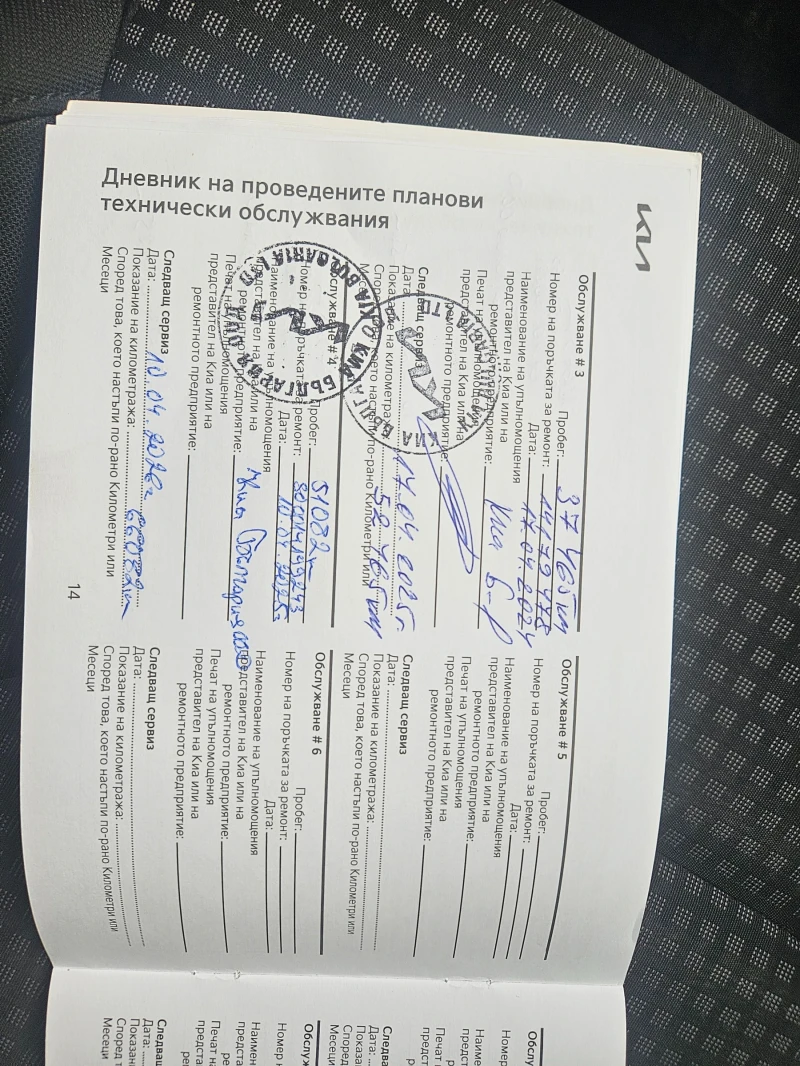 KIA
Дневник на проведените планови
технически обслужвания
Обслужване # 3
Пробег: 37 465 км
Номер на поръчката за ремонт: 14179478
Дата: 17.04.2024
Наименование на упълномощения
представител на Киа или на
ремонтното предприятие: Киа Б-р
Печат на упълномощения
представител на Киа или на
ремонтното предприятие:
Следващ сервиз
Дата: 17.04.2025г.
Показание на километража: 52 465 км
Според това, което настъпи по-рано Километри или
Месеци
Обслужване # 4
Пробег: 51082
Номер на поръчката за ремонт:
Дата: 10.04.2025г
Наименование на упълномощения
представител на Киа или на
ремонтното предприятие: Киа България
Печат на упълномощения
представител на Киа или на
ремонтното предприятие:
Следващ сервиз
Дата: 10.04.2026г
Показание на километража:
Според това, което настъпи по-рано Километри или
Месеци
Обслужване # 5
Пробег:
Номер на поръчката за ремонт:
Дата:
Наименование на упълномощения
представител на Киа или на
ремонтното предприятие:
Печат на упълномощения
представител на Киа или на
ремонтното предприятие:
Следващ сервиз
Дата:
Показание на километража:
Според това, което настъпи по-рано Километри или
Месеци
Обслужване # 6
Пробег:
Номер на поръчката за ремонт:
Дата:
Наименование на упълномощения
представител на Киа или на
ремонтното предприятие:
Печат на упълномощения
представител на Киа или на
ремонтното предприятие:
Следващ сервиз
Дата:
Показание на километража:
Според това, което настъпи по-рано Километри или
Месеци
14